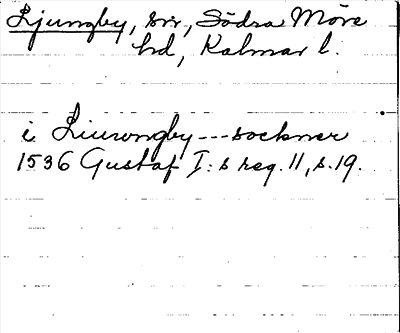 Ljungby, sn, Södra Möre
hd, Kalmar l.
i Liurongby---sockner
1536 Gustaf I:s reg. 11, s.19.